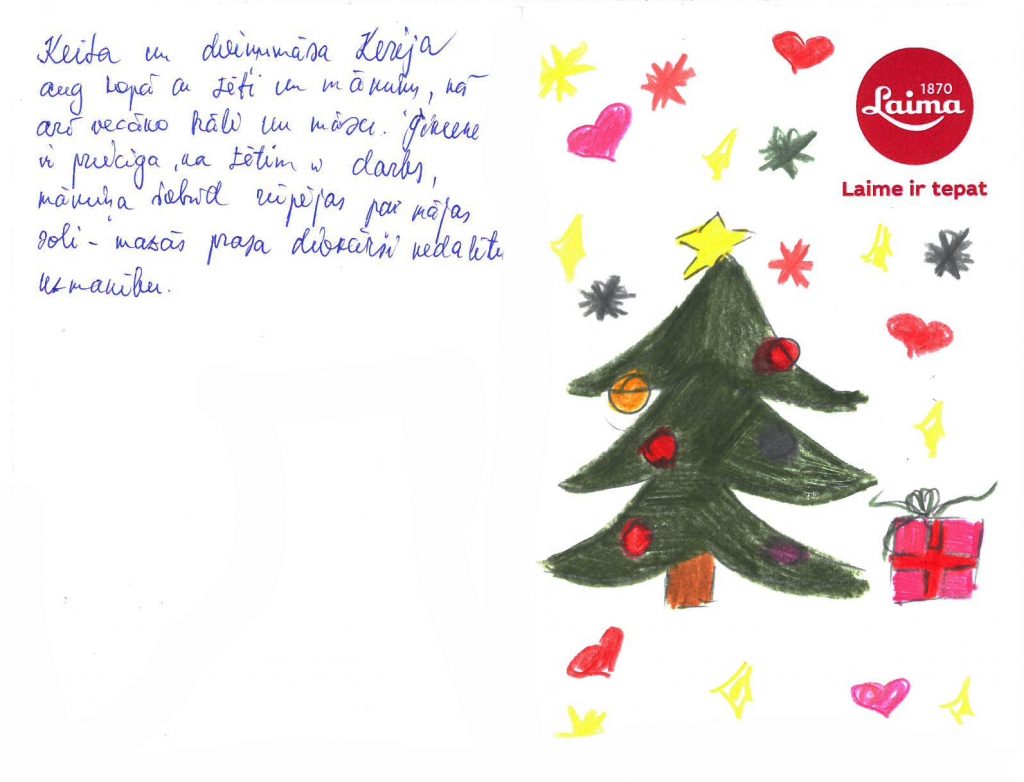 Keita un dvīņumāsa Kerija
aug kopā ar tēti un māmiņu, kā
arī vecāko brāli un māsu. Ģimene
ir priecīga, ka tētim ir darbs,
māmiņa šobrīd rūpējas par mājas
soli - mazās prasa divkārši nedalītu
uzmanību.
1870
Laima
Laime ir tepat